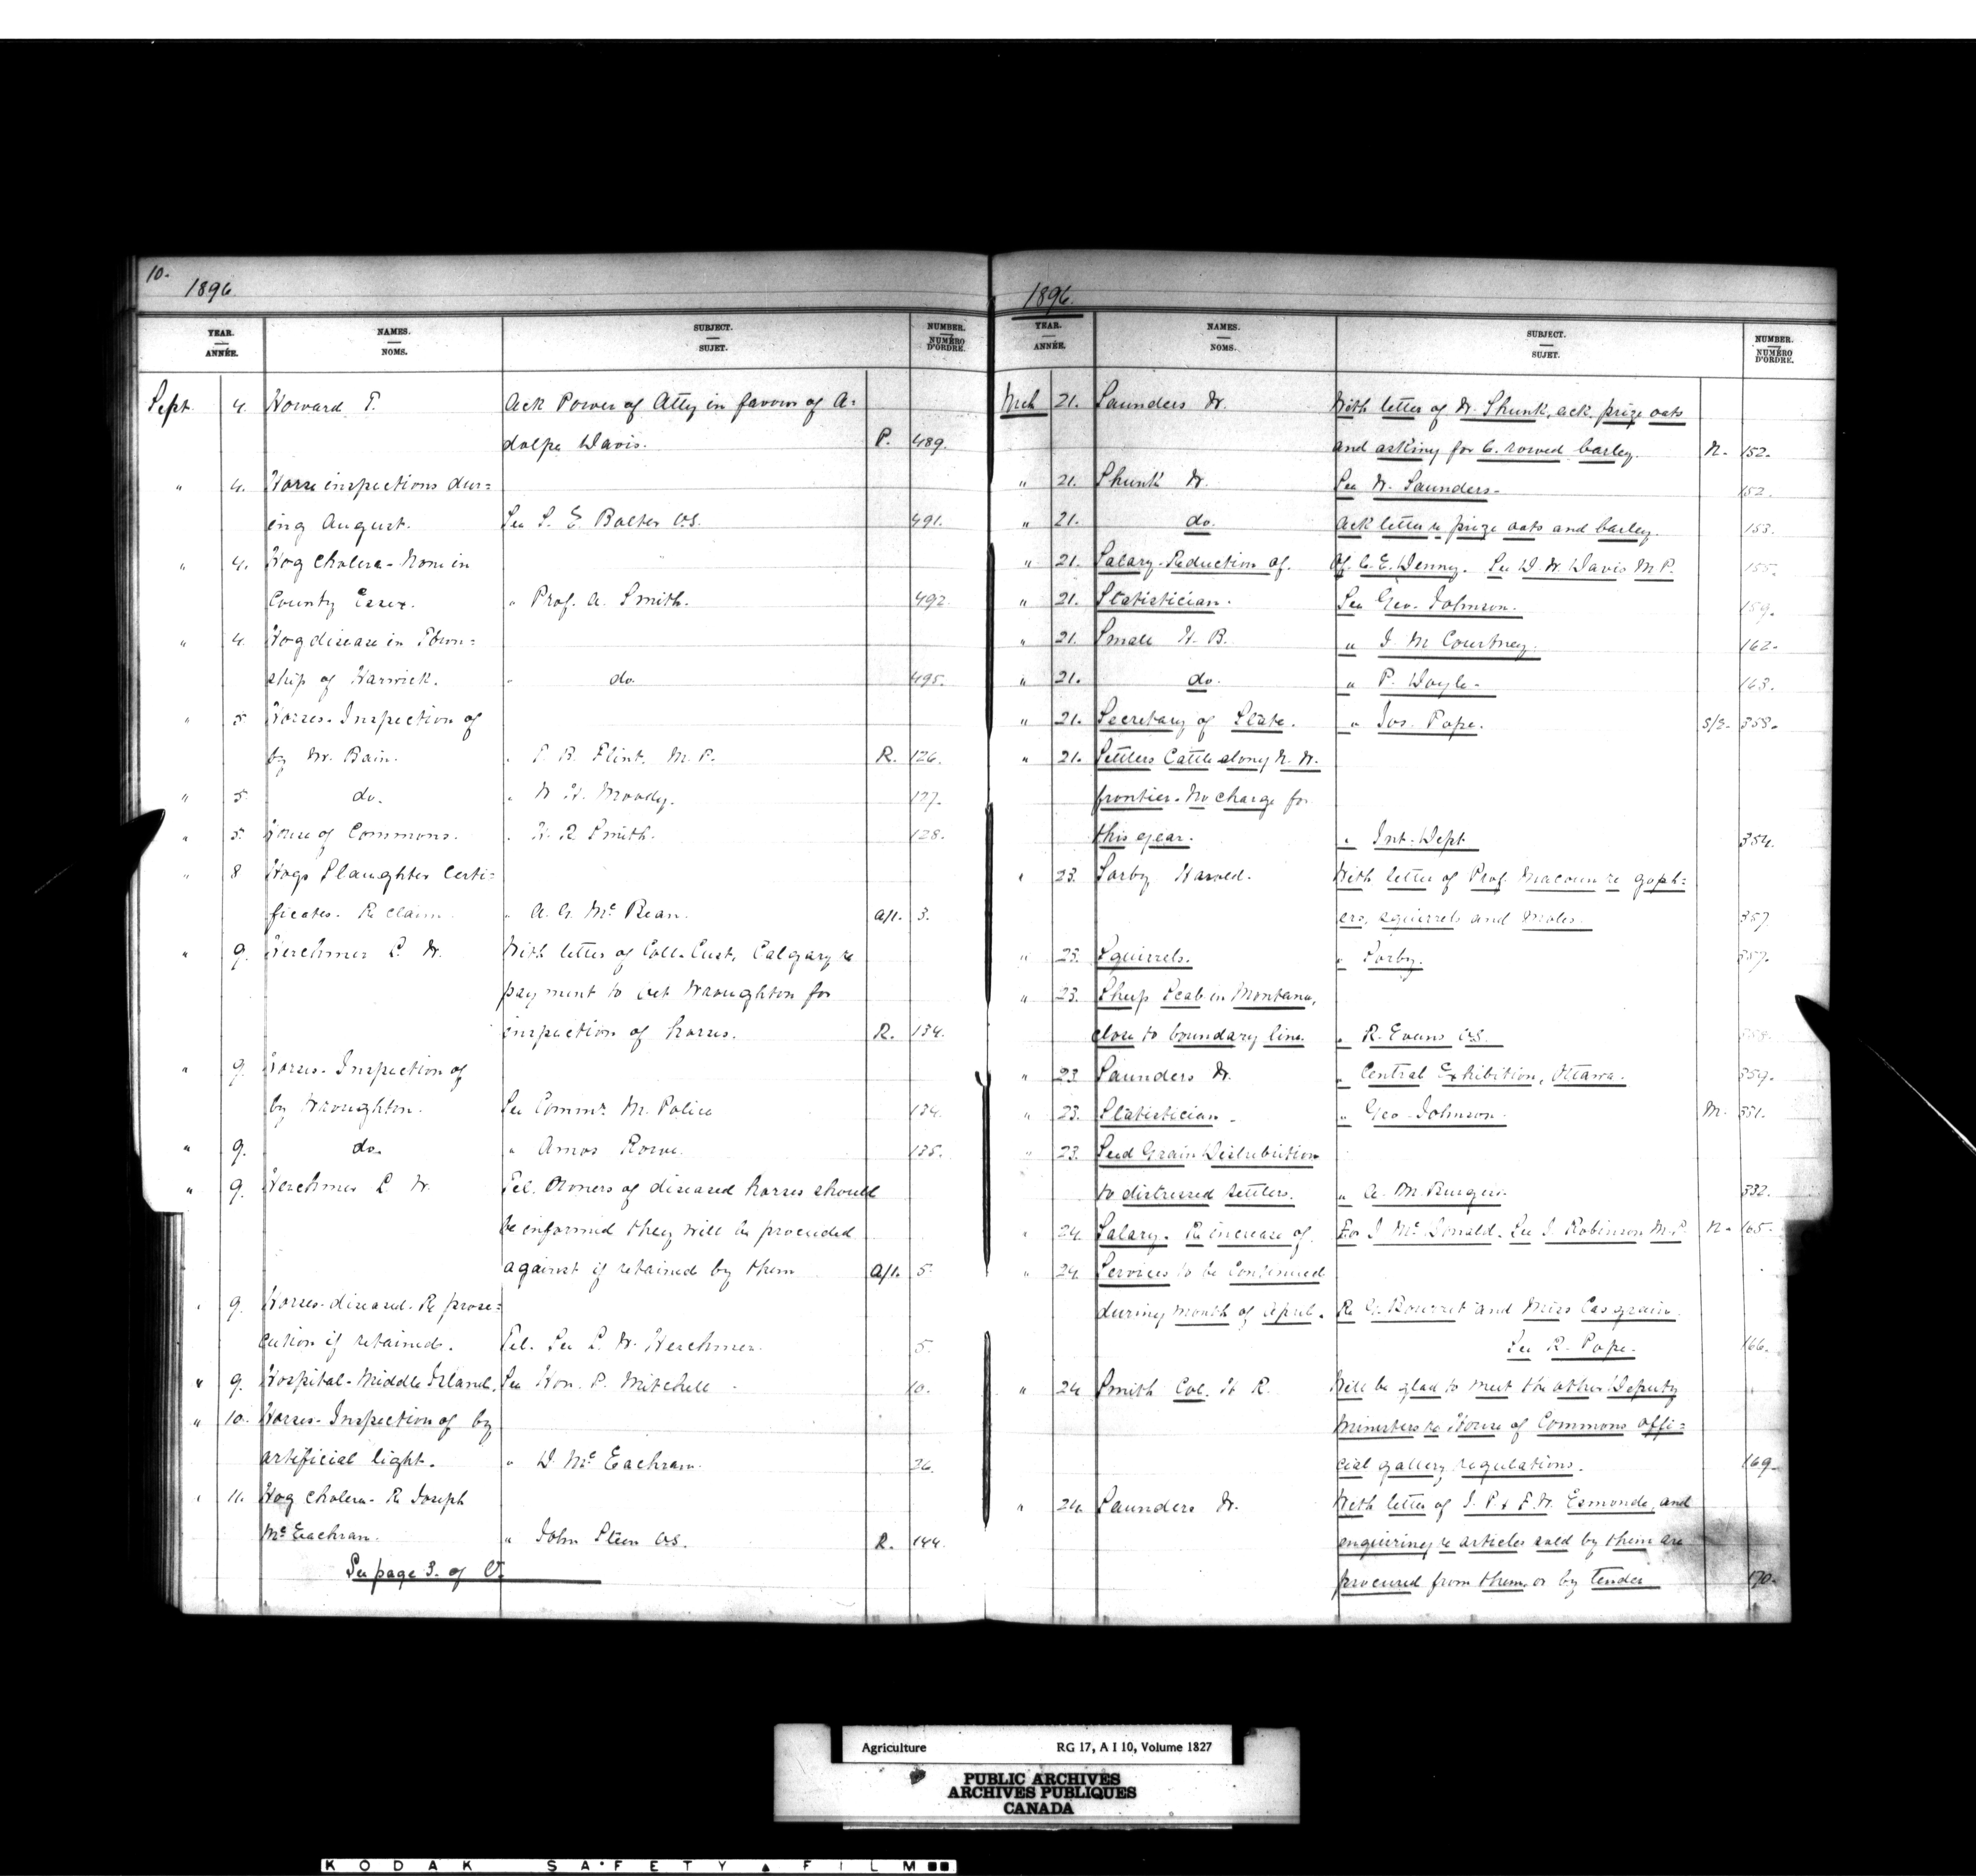 10.
1896
YEAR. ANNÉE. NAMES. NOMS. SUBJECT. SUJET. NUMBER. NUMÉRO D'ORDRE.
Sept 4. Howard T. Ack Power of Atty in favour of A=
dolpe Davis. P. 489.
" 4. Horse inspections dur=
ing August. See S. E. Bolter VS. 491.
" 4. Hog Cholera - None in
County Essex. " Prof. A. Smith. 492
" 4. Hog disease in Town=
ship of Harwick. " do. 495.
" 5 Horses - Inspection of
by Mr. Bain. " T. B. Flint. M.P. R. 126.
" 5 do. " W. H. Moody. 127.
" 5 House of Commons. " H. R. Smith. 128.
" 8 Hogs Slaughter Certi=
ficates. Re claim. " A. G. McBean. A/1. 3.
" 9. Herchmer L. W. With letter of Coll. Cust. Calgary re
payment to vet Wroughton for
inspection of horses. R. 134.
" 9. Horses - Inspection of
by Wroughton. See Commr. M. Police 134.
" 9. do. " Amos Rowe. 135.
" 9. Herchmer L. W. Tel. Owners of diseased horses should
be informed they will be proceeded
against if retained by them A/1. 5.
" 9. Horses - diseased - Re prose=
cution if retained. Tel. See L. W. Herchmer. 5.
" 9. Hospital - Middle Island. See Hon. P. Mitchell. 10.
" 10. Horses - Inspection of by
artificial light. " D. McEachran. 26.
" 11. Hog Cholera - Re Joseph
McEachran. " John Steen VS. R. 144.
See page 3. of V.
1896.
YEAR. ANNÉE. NAMES. NOMS. SUBJECT. SUJET. NUMBER. NUMÉRO D'ORDRE.
Mch 21. Saunders W. With letter of W. Shunk, ack prize oats
and asking for 6. rowed barley. N. 152.
" 21. Shunk W. See W. Saunders. 152.
" 21. do. Ack letter re prize oats and barley. 153.
" 21. Salary - Reduction of. Of C. E. Denny. See D. W. Davis M.P. 155.
" 21. Statistician. See Geo. Johnson. 159.
" 21. Small H. B. " J. M. Courtney. 162.
" 21. do. " P. Doyle. 163.
" 21. Secretary of State. " Jos. Pope. S/2. 353.
" 21. Settlers Cattle along N. W.
frontier - No charge for
this year. " Int. Dept 354.
" 23. Sorby Harold. With letter of Prof. Macoun re goph=
ers, squirrels and moles. 357
" 23. Squirrels. " Sorby. 357.
" 23. Sheep Scab in Montana,
close to boundary line. " R. Evans VS. 358.
" 23 Saunders W. " Central Exhibition, Ottawa. 359.
" 23. Statistician. " Geo. Johnson. M. 331.
" 23. Seed Grain Distribution
to distressed settlers. " A. M. Burgess. 332.
" 24. Salary. Re increase of. For J. McDonald. See J. Robinson M.P. N. 165.
" 24. Services to be Continued
during month of April. Re G. Bourret and Miss Casgrain.
See R. Pope. 166.
" 24 Smith Col. H. R. Will be glad to meet the other Deputy
Ministers re House of Commons offi=
cial gallery regulations. 169.
" 24. Saunders W. With letter of J. P. & F. W. Esmonde, and
enquiring re articles sold by them are
procured from them, or by tender 170.
Agriculture RG 17, A I 10, Volume 1827
PUBLIC ARCHIVES
ARCHIVES PUBLIQUES
CANADA
KODAK SAFETY FILM